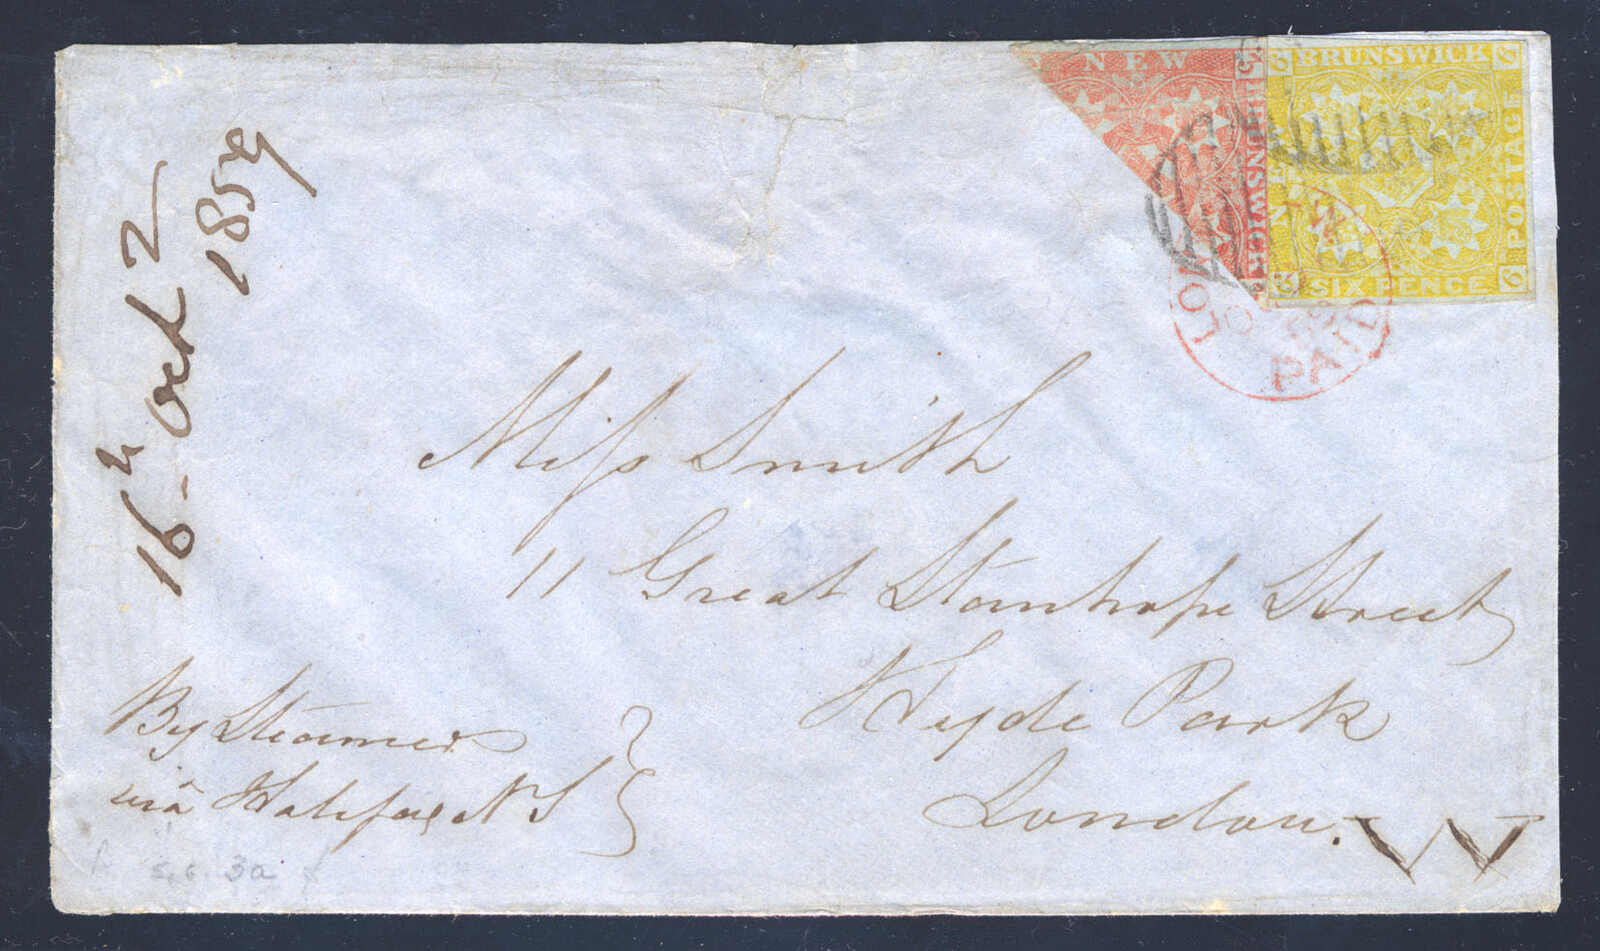 16h Oct 2
1859
NEW
BRUNSWICK
BRUNSWICK
POSTAGE
SIX PENCE
6
6
6
6
PAID
Miss Smith
11 Great Stanhope Street
Hyde Park
London.
W
By Steamer
via Halifax N S
S.G. 3a